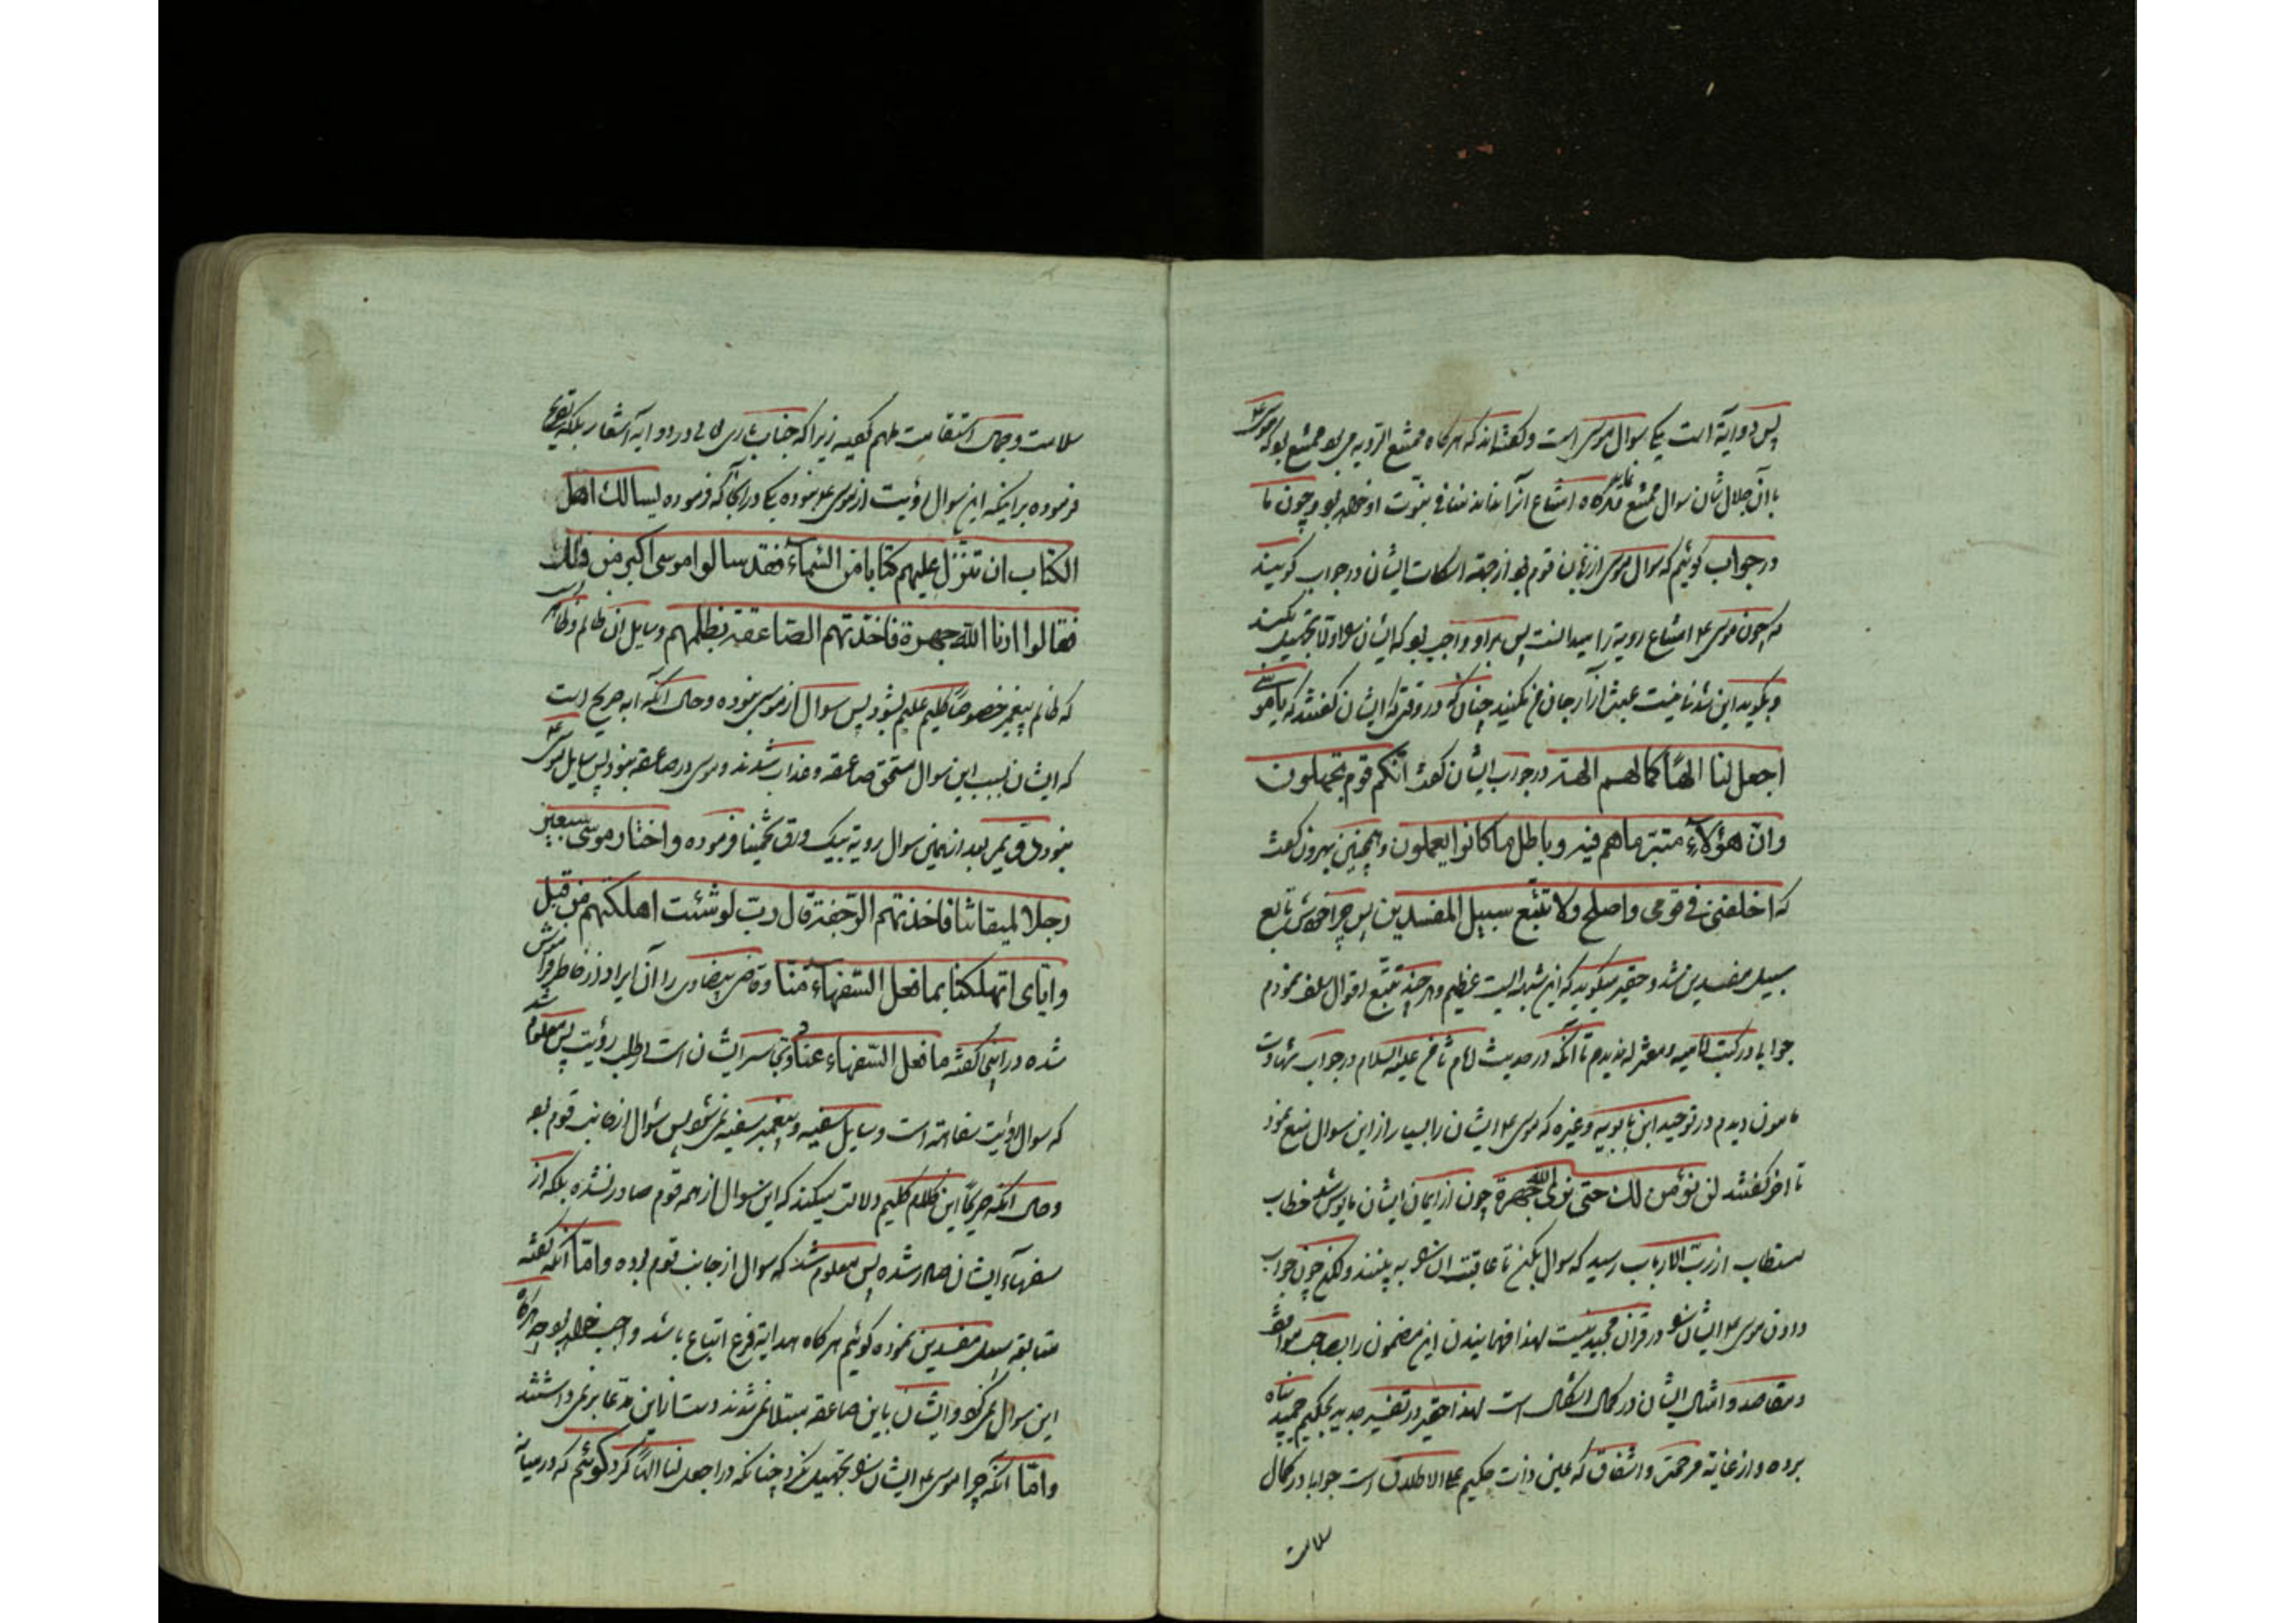 پس دو آیة است یکی سوال موسی است و گفته‌اند که هرگاه ممتنع الرؤیه می بود ممتنع بود که موسی ع
با آن جلال شان سوال ممتنع نماید هرگاه امتناع آنرا نداند منافی نبوّت او خواهد بود و چون ما
در جواب گوئیم که سوال موسی از زبان قوم بود از جهته اسکات ایشان در جواب گویند
که چون موسی ع امتناع رویة را میدانست پس بر او واجب بود که ایشان را تجهیل بکند
و بگوید این شدنی نیست چنانکه در وقتی که ایشان گفتند که یا موسی
اجعل لنا الهًا کما لهم الهة در جواب ایشان گفت انّکم قوم تجهلون
وانّ هؤلآء متبّر ماهم فیه و باطل ما کانوا یعملون و همچنین بهرون گفت
که اخلفنی فی قومی واصلح ولا تتّبع سبیل المفسدین پس چرا خودش تابع
سبیل مفسدین شد و حقیر میگوید که این شبهه ایست عظیم و هر چند تتبّع اقوال سلف نمودم
جوابا در کتب امامیه و معتزله ندیدم تا آنکه در حدیث امام ثامن علیه السلام در جواب
مامون دیدم در توحید ابن بابویه و غیره که موسی ع ایشان را بسیار از این سوال منع نمود
تا آخر گفتند لن نؤمن لك حتی نری الله جهرة چون از ایمان ایشان مایوس شد خطاب
مستطاب از ربّ الارباب رسید که سوال بکن تا عاقبت آن را به بینند ولکن چون جواب
دادن موسی ع ایشان را در قرآن مجید نیست لهذا فهمانیدن این مضمون را بصاحب مواقف
و مقاصد و امثال ایشان در کمال اشکال است لهذا حقیر در تفسیر جدید بحکیم حمید پناه
برده و از غایة مرحمت و اشفاق که عین ذات حکیم علی الاطلاق است جوابا در کمال
سلامت
سلامت و جمال استقامت ملهم گردید زیرا که جناب باری تعالی در دو آیه اشعار بلکه تصریح
فرموده بر اینکه این سوال رؤیت از موسی ع نبوده یکی در آنجا که فرموده یسالك اهل
الکتاب ان تنزل علیهم کتابا من السّماء فقد سالوا موسی اکبر من ذلك
فقالوا ارنا الله جهرة فاخذتهم الصّاعقة بظلمهم و سایل آن ظالم و ظاهر است
که ظالم پیغمبر خصوصًا کلیم علیم نشود پس سوال از موسی نبوده و حال آنکه آیه صریح است
که ایشان بسبب این سوال مستحق صاعقه و عذاب شدند و موسی در صاعقه نبود پس سایل موسی ع
نبود دوّیم بعد از همین سوال رویة بیک ورق تخمینا فرموده واختار موسی سبعین
رجلا لمیقاتنا فاخذتهم الرّجفة قال ربّ لو شئت اهلکتهم من قبل
وایّای اتهلکنا بما فعل السّفهاء منّا و قاضی بیضاوی را آن ایراد از خاطر فراموش شد
شده در اینجا گفته ما فعل السّفهاء عناد و تجاسر ایشان است در طلب رؤیت پس معلوم
که سوال رؤیت سفاهته است و سایل سفیه و پیغمبر سفیه نمی‌شود پس سؤال از جانب قوم بود
و حال آنکه صریحًا این کلام کلیم دلالت میکند که این سوال از همه قوم صادر نشده بلکه از
سفهآء ایشان صادر شده پس معلوم شد که سوال از جانب قوم بوده وامّا آنکه گفته
متابعة سبیل مفسدین نموده گوئیم هرگاه هدایة فرع اتباع باشد واجب خواهد بود چه هرگاه
این سوال نمی‌کرد و ایشان باین صاعقه مبتلا نمی‌شدند دست از این مدّعا برنمی‌داشتند
وامّا آنکه چرا موسی ع ایشان را تجهیل نکرد چنانکه در اجعل لنا الهًا کرد گوئیم که در میانه